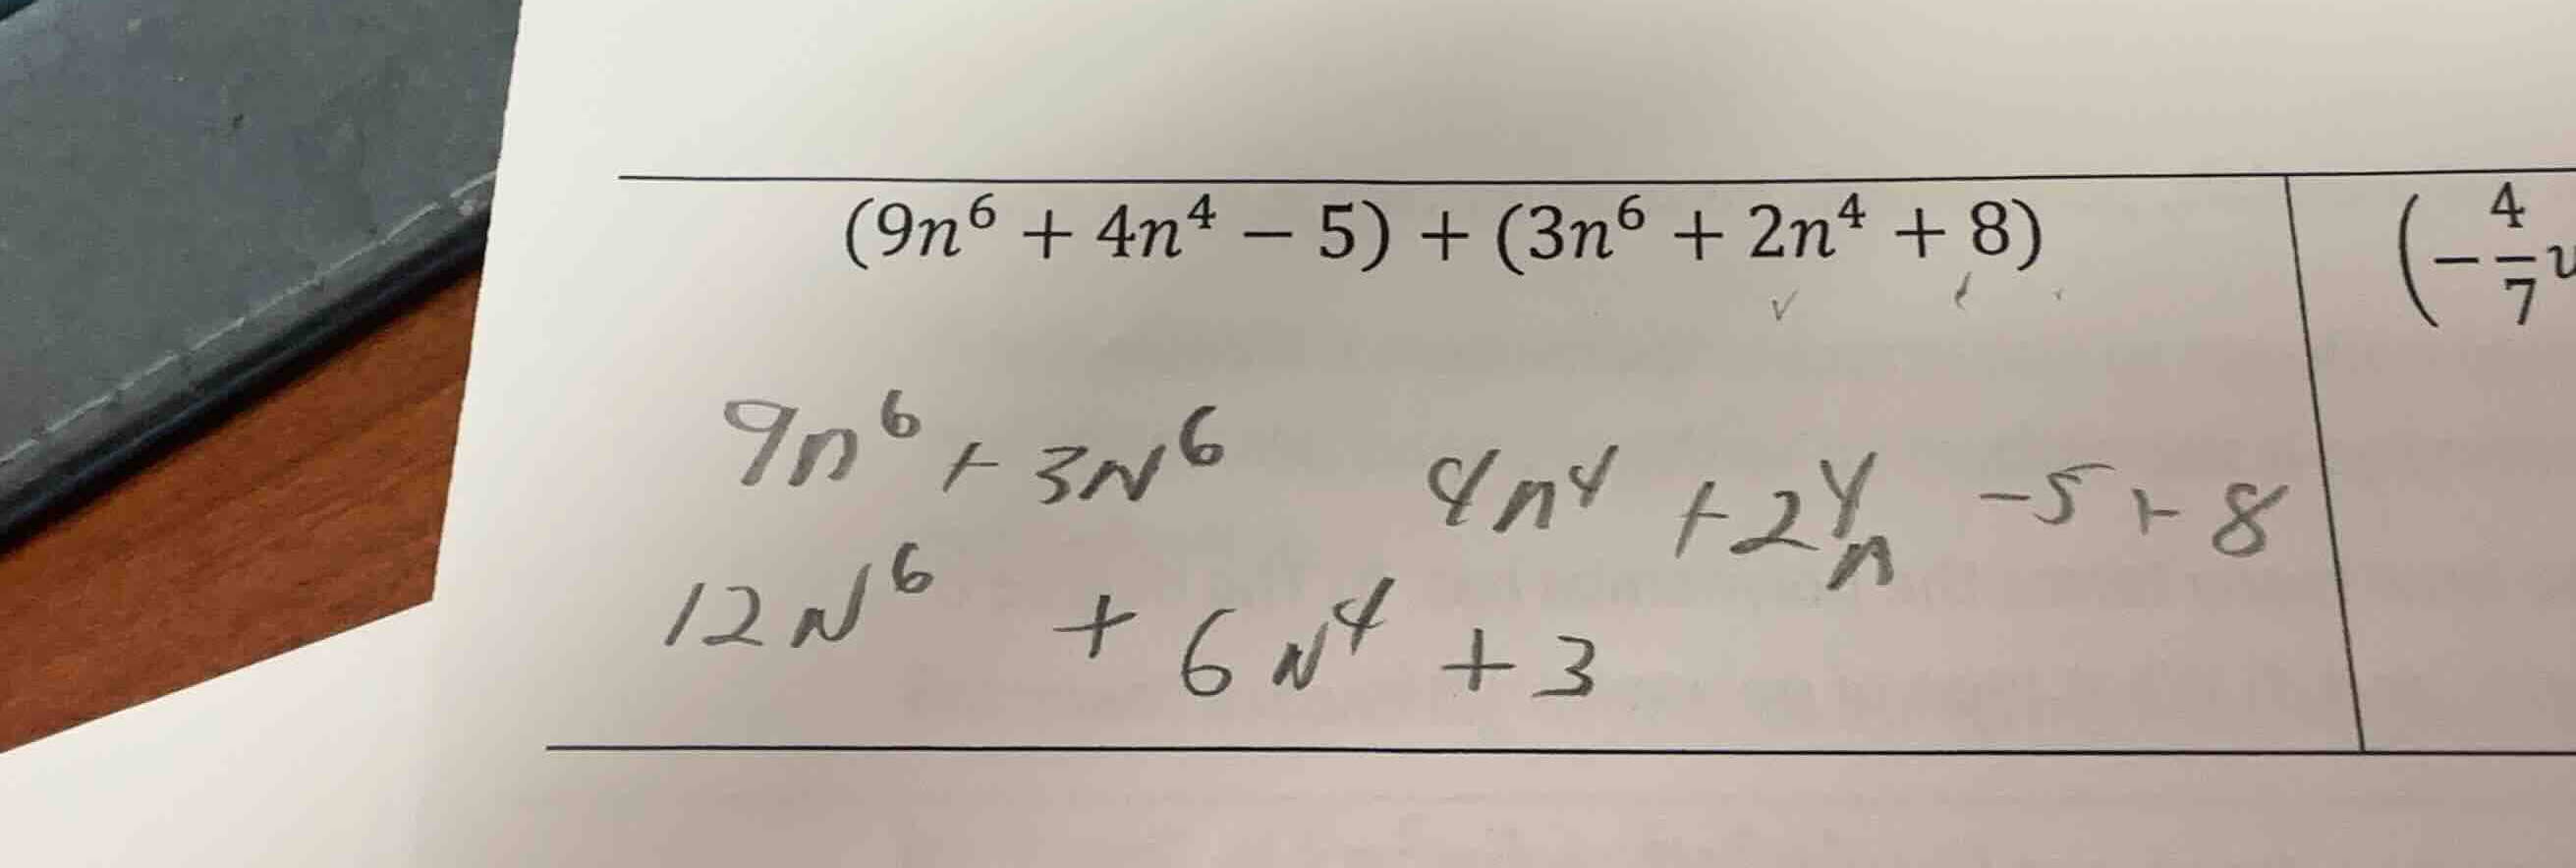 (9n⁶ + 4n⁴ − 5) + (3n⁶ + 2n⁴ + 8)
(−4/7
9n⁶ + 3N⁶ 4n⁴ + 2⁴n −5 + 8
12N⁶ + 6N⁴ + 3